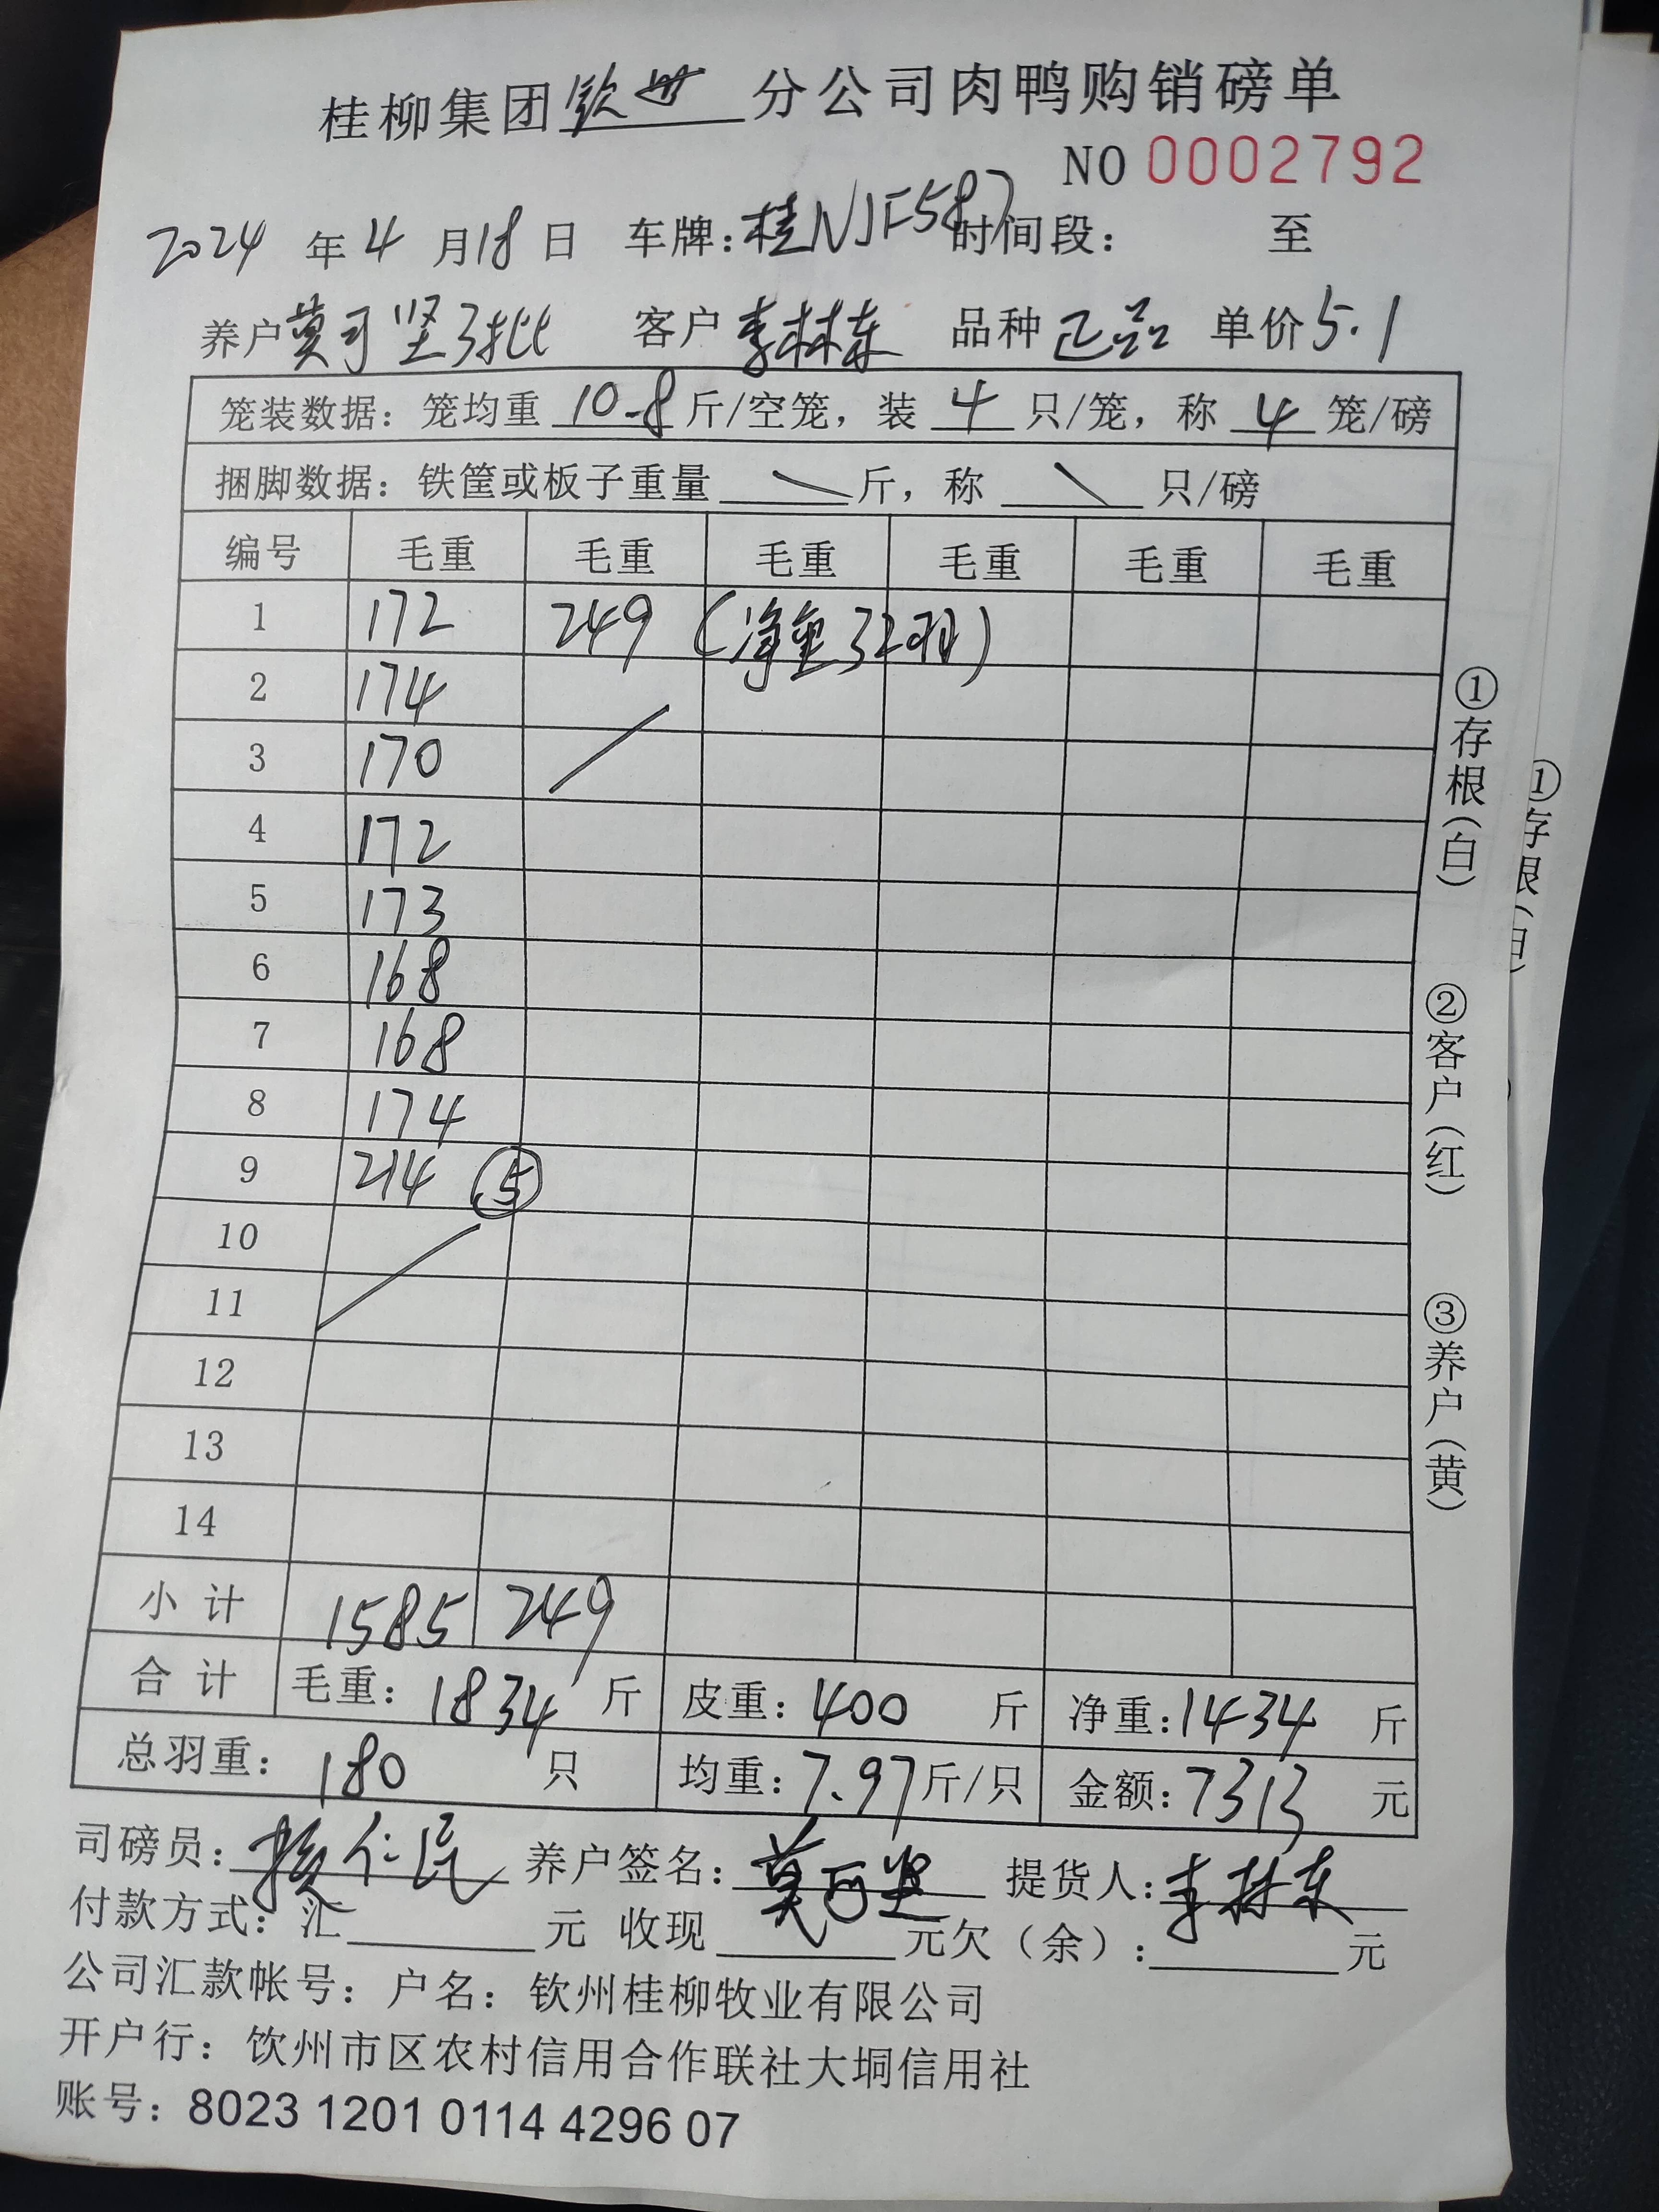 桂柳集团钦州分公司肉鸭购销磅单
NO 0002792
2024 年 4 月 18 日 车牌：桂NJF587 时间段： 至
养户 莫可坚3批 客户 李林东 品种 正品 单价 5.1
笼装数据：笼均重 10.8 斤/空笼，装 4 只/笼，称 4 笼/磅
捆脚数据：铁筐或板子重量 \ 斤，称 \ 只/磅
编号 毛重 毛重 毛重 毛重 毛重 毛重
1 172 249 (净重32羽)
2 174
3 170
4 172
5 173
6 168
7 168
8 174
9 214 ⑤
10
11
12
13
14
小计 1585 249
合计 毛重：1834 斤 皮重：400 斤 净重：1434 斤
总羽重：180 只 均重：7.97 斤/只 金额：7313 元
司磅员： 仁民 养户签名：莫可坚 提货人：李林东
付款方式：汇 元 收现 元欠（余）： 元
公司汇款帐号：户名：钦州桂柳牧业有限公司
开户行：饮州市区农村信用合作联社大垌信用社
账号：8023 1201 0114 4296 07
①存根（白）
②客户（红）
③养户（黄）
①存根（白）